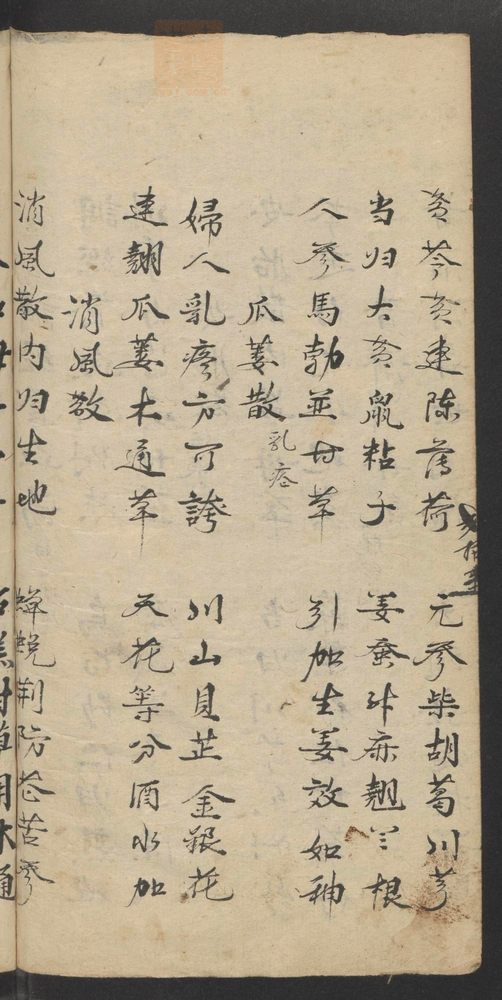 芩芩黄連陳薄荷 元參柴胡葛川芎
当归大黄鼠粘子 姜蚕升麻翹兰根
人參馬勃並甘草 引加生姜效如神
瓜蒌散 乳疮
婦人乳癆方可誇 川山貝芷金銀花
連翹瓜蒌木通草 天花等分酒水加
消風散
消風散内归生地 蝉蜕荆防苍苦參